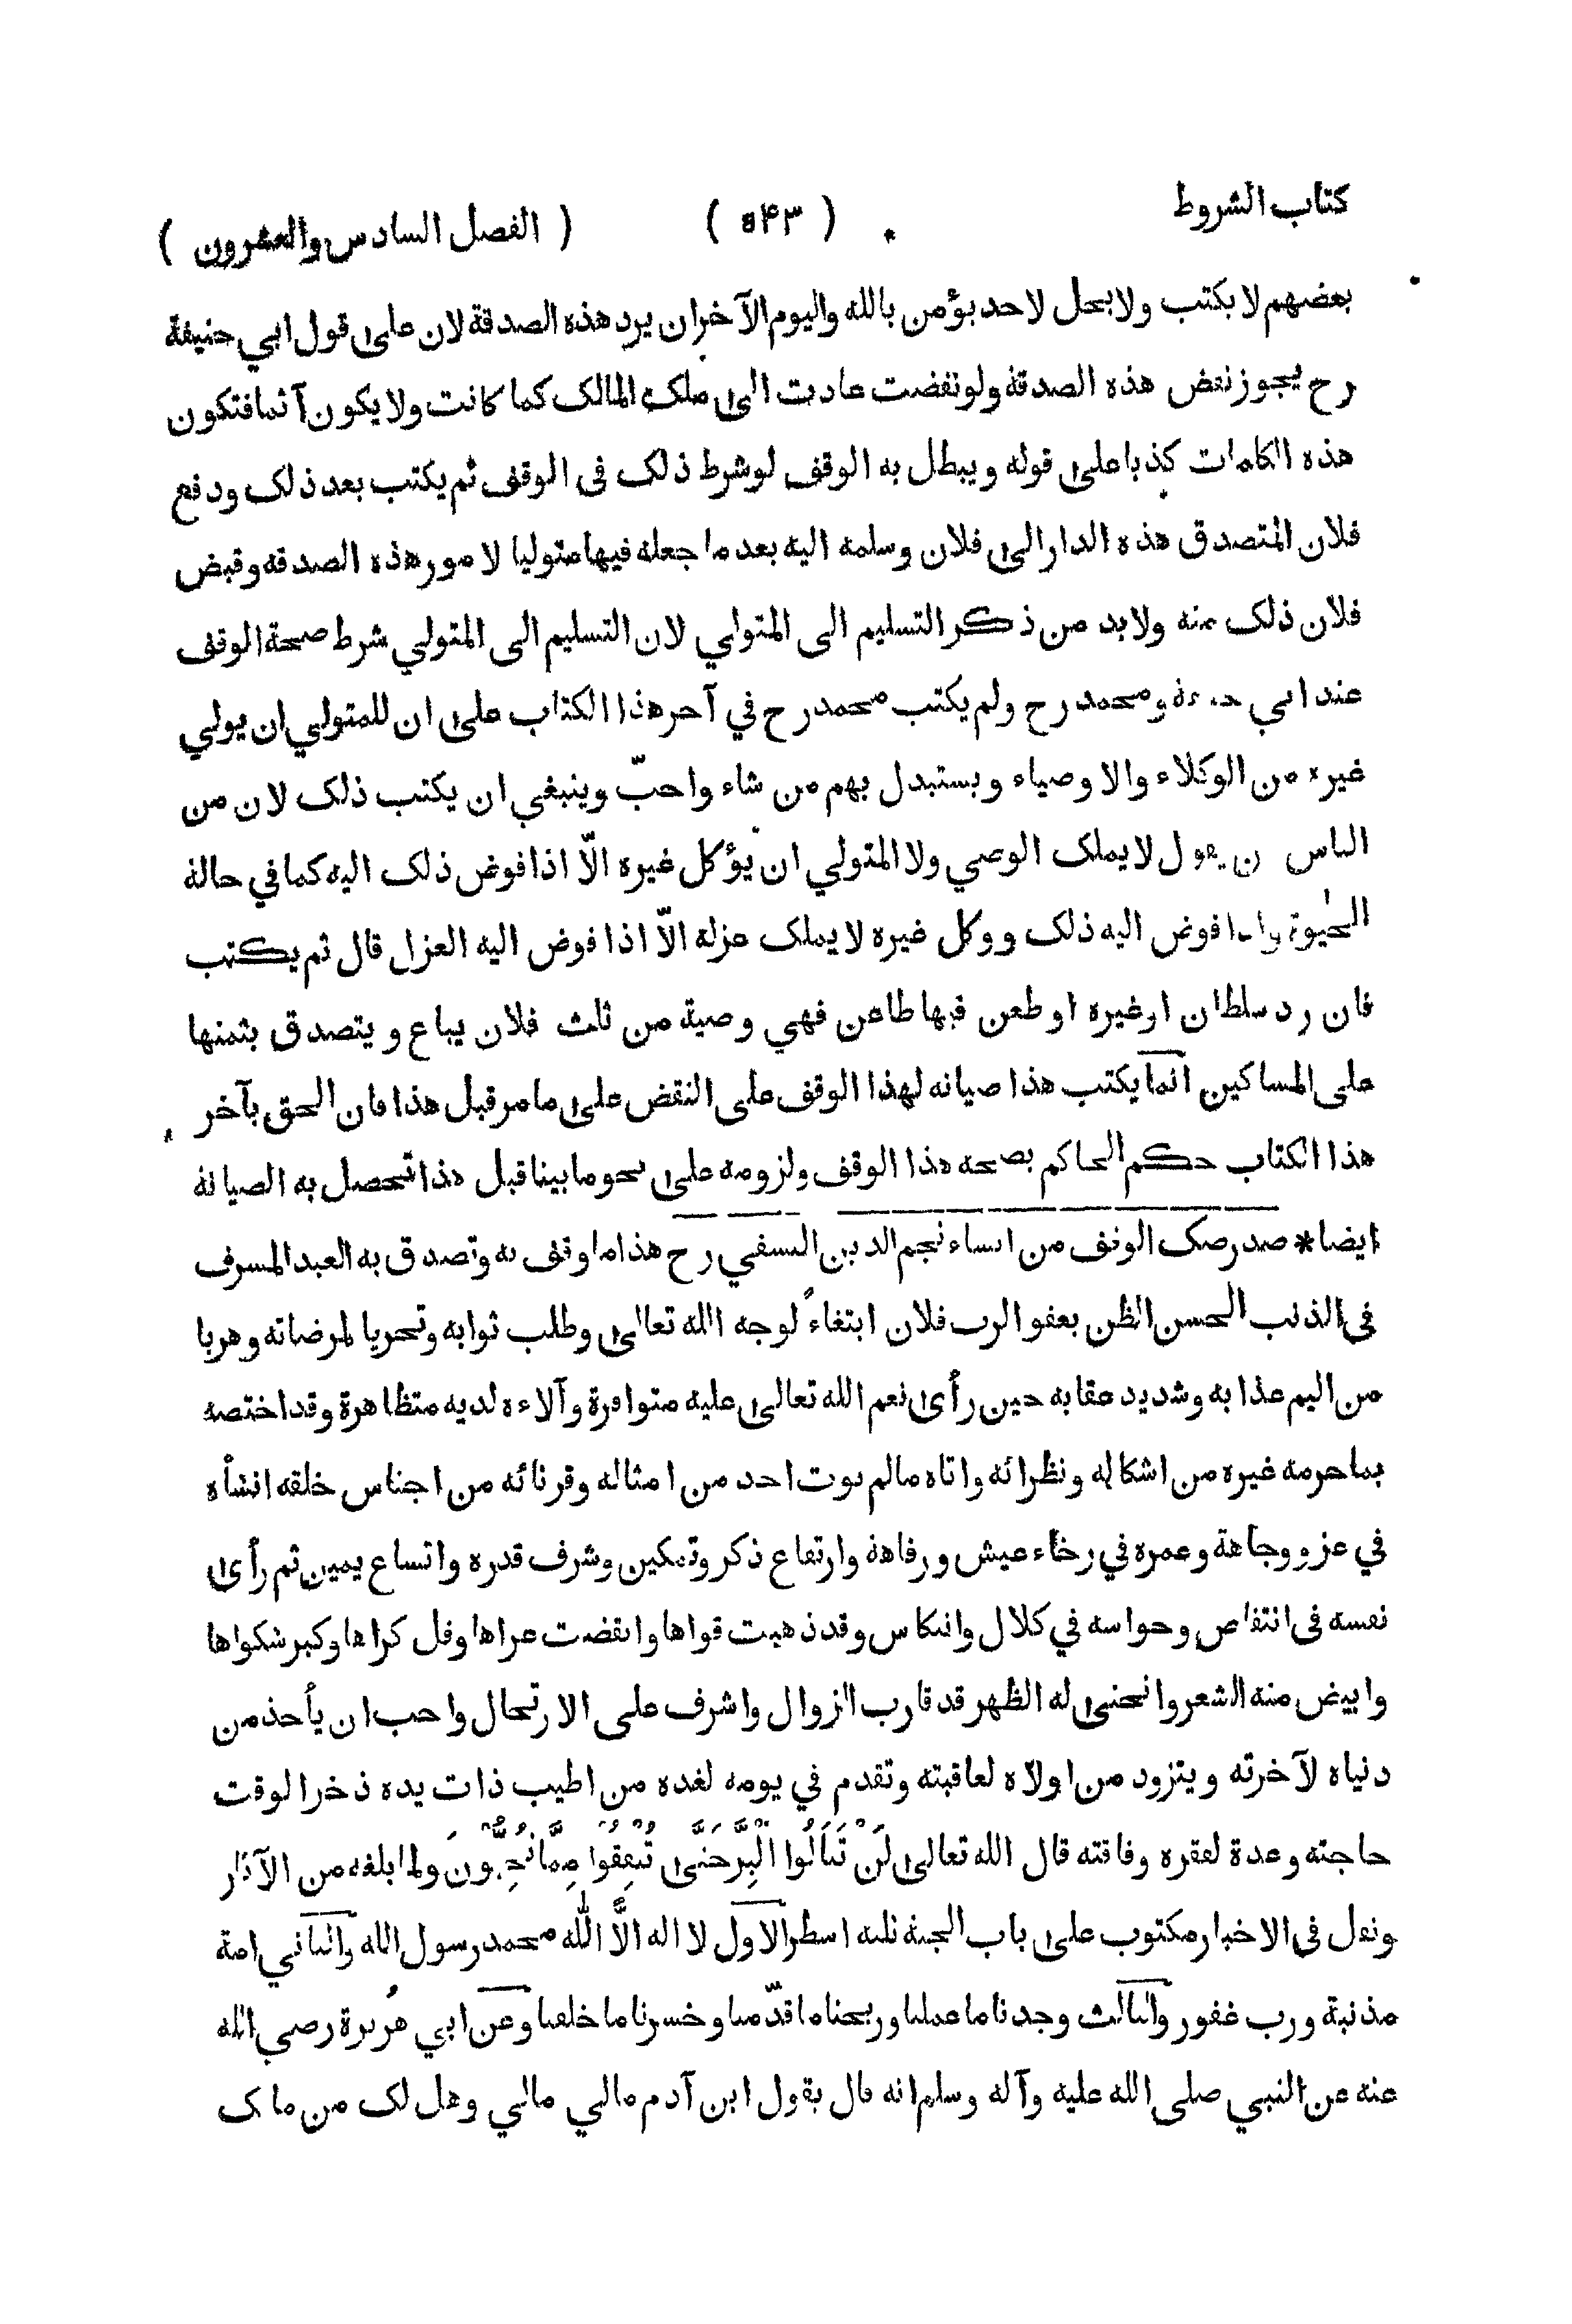 كتاب الشروط ( ٥۴٣ ) ( الفصل السادس والعشرون )
بعضهم لا يكتب ولا يحل لاحد يؤمن بالله واليوم الآخر ان يرد هذه الصدقة لان على قول ابي حنيفة
رح يجوز نقض هذه الصدقة ولو نقضت عادت الى ملك المالك كما كانت ولا يكون آثما فتكون
هذه الكلمات كذبا على قوله ويبطل به الوقف لو شرط ذلك في الوقف ثم يكتب بعد ذلك ودفع
فلان المتصدق هذه الدار الى فلان وسلمه اليه بعد ما جعله فيها متوليا لامور هذه الصدقه وقبض
فلان ذلك منه ولابد من ذكر التسليم الى المتولي لان التسليم الى المتولي شرط صحة الوقف
عند ابي حنيفة ومحمد رح ولم يكتب محمد رح في آخر هذا الكتاب على ان للمتولي ان يولي
غيره من الوكلاء والاوصياء ويستبدل بهم من شاء واحبّ وينبغي ان يكتب ذلك لان من
الناس من يقول لا يملك الوصي ولا المتولي ان يؤكل غيره الّا اذا فوض ذلك اليه كما في حالة
الحيوة واذا فوض اليه ذلك ووكل غيره لا يملك عزله الّا اذا فوض اليه العزل قال ثم يكتب
فان رد سلطان او غيره او طعن فيها طاعن فهي وصية من ثلث فلان يباع ويتصدق بثمنها
على المساكين انما يكتب هذا صيانه لهذا الوقف على النقض على ما مر قبل هذا فان الحق بآخر
هذا الكتاب حكم الحاكم بصحه هذا الوقف ولزومه على نحو ما بينا قبل هذا تحصل به الصيانة
ايضا * صدر صك الوقف من انشاء نجم الدين النسفي رح هذا ما وقف به وتصدق به العبد المسرف
في الذنب الحسن الظن بعفو الرب فلان ابتغاءً لوجه الله تعالى وطلب ثوابه وتحريا لمرضاته وهربا
من اليم عذابه وشديد عقابه حين رأى نعم الله تعالى عليه متوافرة وآلاءه لديه متظاهرة وقد اختصه
بما حرمه غيره من اشكاله ونظرائه واتاه مالم يوت احد من امثاله وقرنائه من اجناس خلقه انشأه
في عز ووجاهة وعمره في رخاء عيش ورفاهة وارتفاع ذكر وتمكين وشرف قدره واتساع يمين ثم رأى
نفسه في انتقاص وحواسه في كلال وانكاس وقد ذهبت قواها وانقضت عراها وفل كراها وكبر شكواها
وابيض منه الشعر وانحنى له الظهر قد قارب الزوال واشرف على الارتحال واحب ان يأخذ من
دنياه لآخرته ويتزود من اولاه لعاقبته وتقدم في يومه لغده من اطيب ذات يده ذخرا لوقت
حاجته وعدة لفقره وفاقته قال الله تعالى لَنْ تَنَالُوا الْبِرَّ حَتَّى تُنْفِقُوْا مِمَّا تُحِبُّوْنَ ولما بلغه من الآثار
ونقل في الاخبار مكتوب على باب الجنة ثلثه اسطر الاول لا اله الّا الله محمد رسول الله والثاني امة
مذنبة ورب غفور والثالث وجدنا ما عملنا وربحنا ما قدّمنا وخسرنا ما خلفنا وعن ابي هريرة رضي الله
عنه عن النبي صلى الله عليه وآله وسلم انه قال يقول ابن آدم مالي مالي وهل لك من مالك